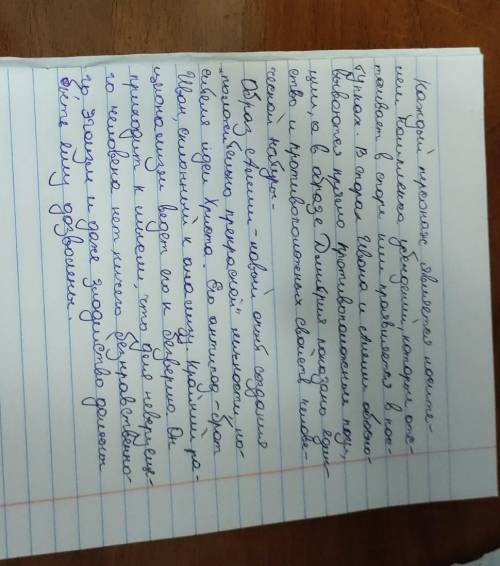 Каждый персонаж является носите-
лем комплекса убеждений, которые отс-
таивает в споре или проявляется в пос-
тупках. В спорах Ивана и Алеши обосно-
вываются прямо противоположные пози-
ции, а в образе Дмитрия показано един-
ство и противоположных свойств челове-
ческой натуры.
Образ Алеши - новый опыт создания
"положительно прекрасной" личности но-
сителя идеи Христа. Его антипод - брат
Иван, склонный к анализу. Крайний ра-
ционализм ведет его к безверию. Он
приходит к мысли, что для неверующе-
го человека нет ничего безнравственно-
го, эгоизм и даже злодейство должны
быть ему дозволены.